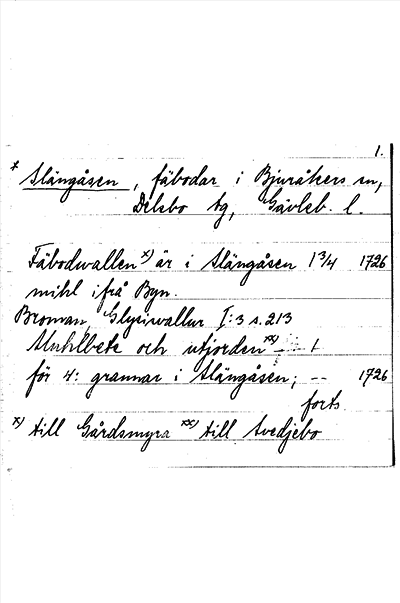 1.
* Slängåsen, fäbodar i Bjuråkers sn,
Delsbo tg, Gävleb. l.
Fäbodwallen x) är i Slängåsen 1 3/4 1726
mihl ifrå Byn.
Broman, Glysisvallur I:3 s. 213
och utjorden xx) --
för 4: grannar i Slängåsen; -- 1726
forts
x) till Gårdsmyra xx) till Svedjebo